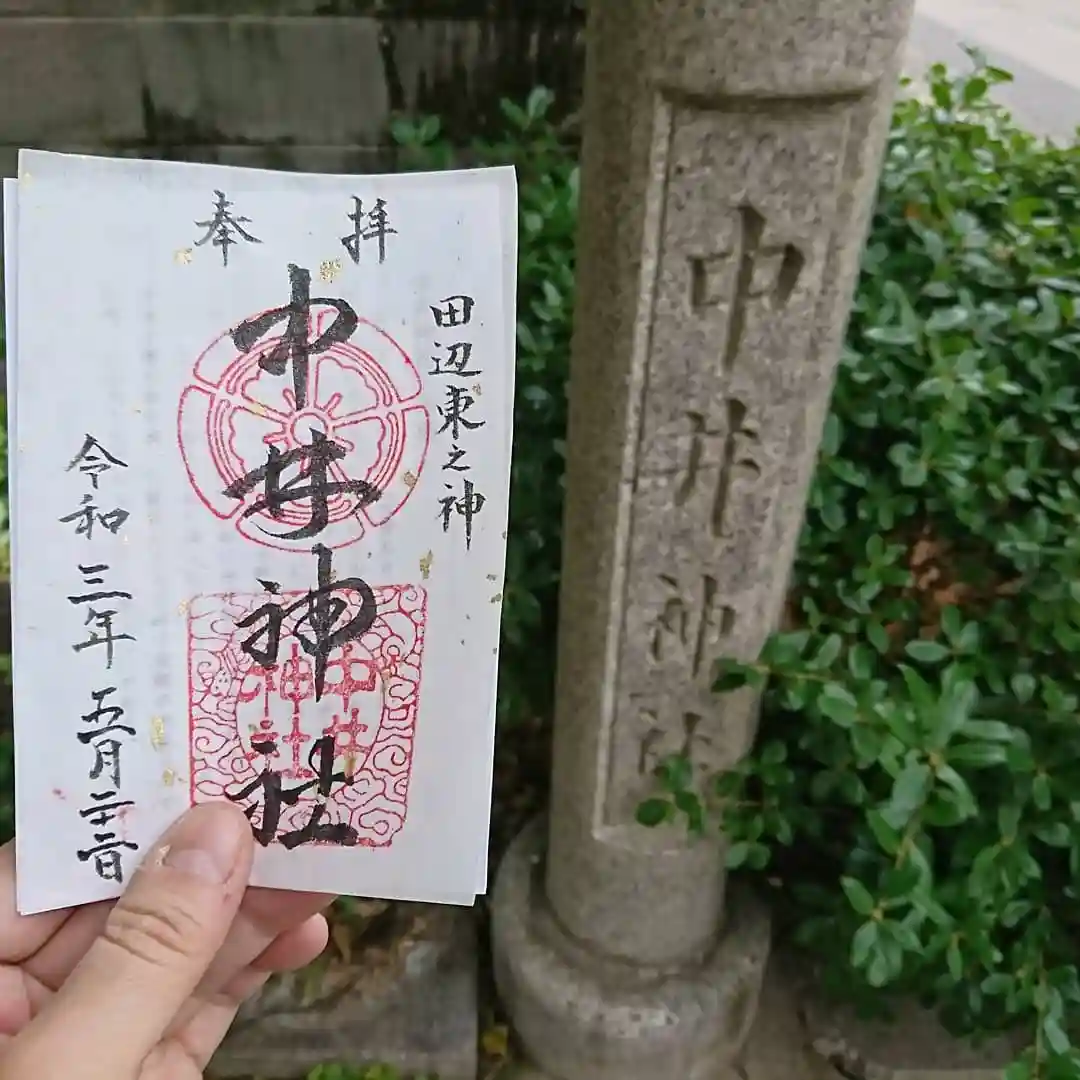 奉拝
田辺東之神
中井神社
中井
神社
令和三年五月二十二日
中井神社